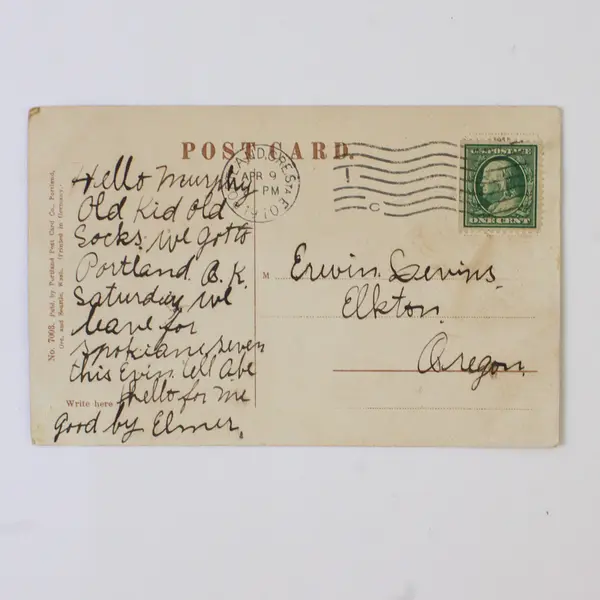 POST CARD.
APR 9
PM
C
U.S. POSTAGE
ONE CENT
No. 7008. Publ. by Portland Post Card Co., Portland,
Ore. and Seattle, Wash. (Printed in Germany.)
Hello Murphy
Old Kid Old
Socks. we got to
Portland O.K.
Saturday we
leave for
spokane seven
this Evin. tell Abe
hello for me
good by Elmer.
Write here
M
Erwin
Elkton.
Oregon.